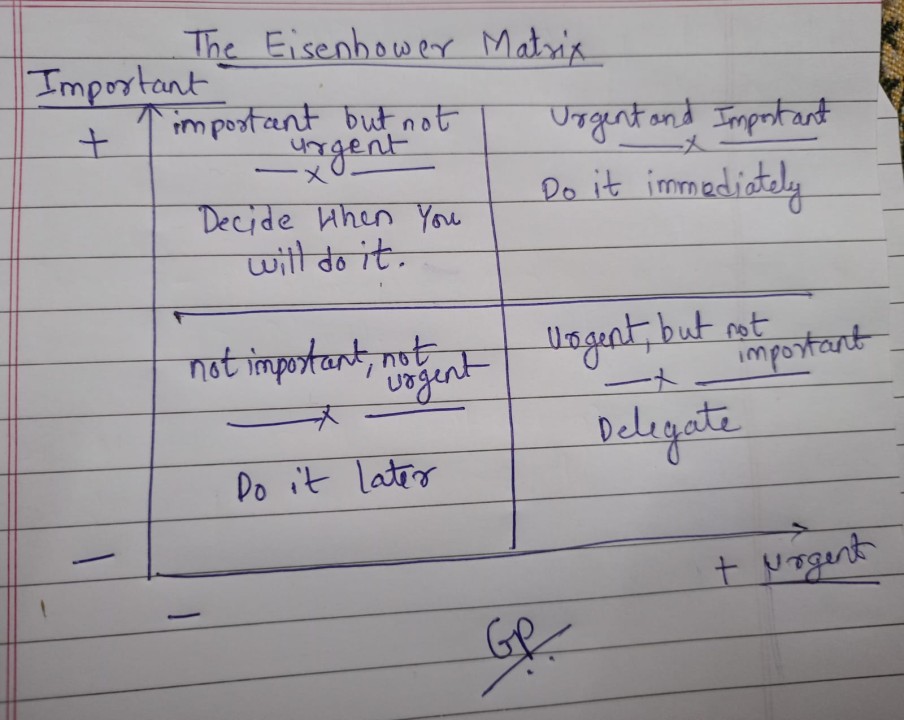 The Eisenhower Matrix
Important
+
important but not
urgent
x
Decide when you
will do it.
Urgent and Important
x
Do it immediately
not important, not
urgent
x
Do it later
Urgent, but not
important
x
Delegate
—
+ urgent
—
GP